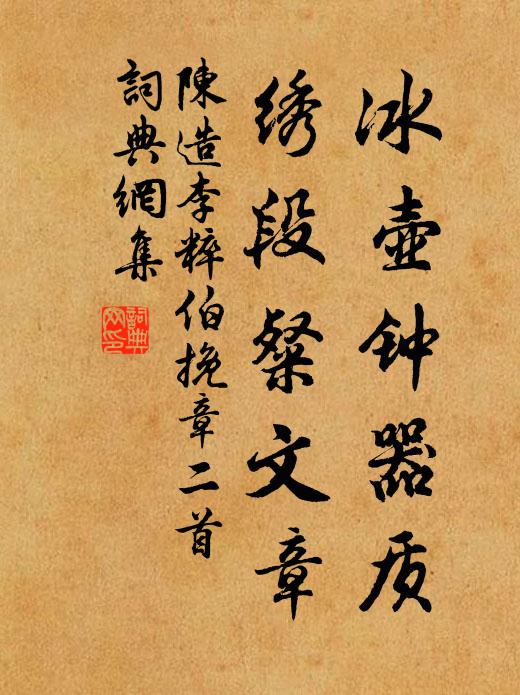 冰壺钟器质
绣段粲文章
陳造李粹伯挽章二首
詞典網集
詞典
网印